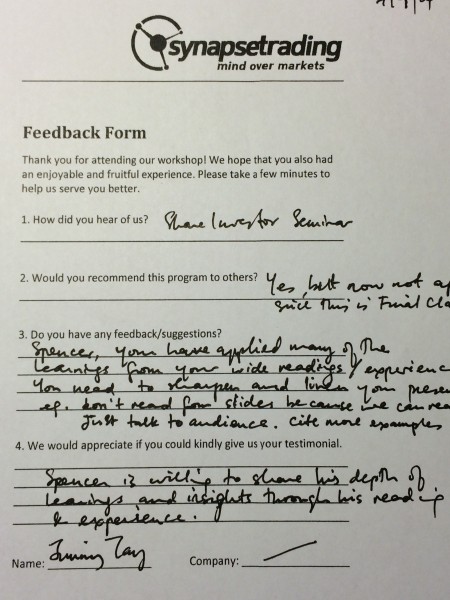 synapsetrading
mind over markets
Feedback Form
Thank you for attending our workshop! We hope that you also had
an enjoyable and fruitful experience. Please take a few minutes to
help us serve you better.
1. How did you hear of us? Share Investor Seminar
2. Would you recommend this program to others? Yes, but now not
since this is Final
3. Do you have any feedback/suggestions?
Spencer, you have applied many of the
learnings from your wide readings / experienc
You need to sharpen and your
eg. don't read from slides because we can
Just talk to audience. Cite more examples
4. We would appreciate if you could kindly give us your testimonial.
Spencer is willing to share his depth of
learnings and insights through his reading
& experience.
Name: Jimmy Tay Company: